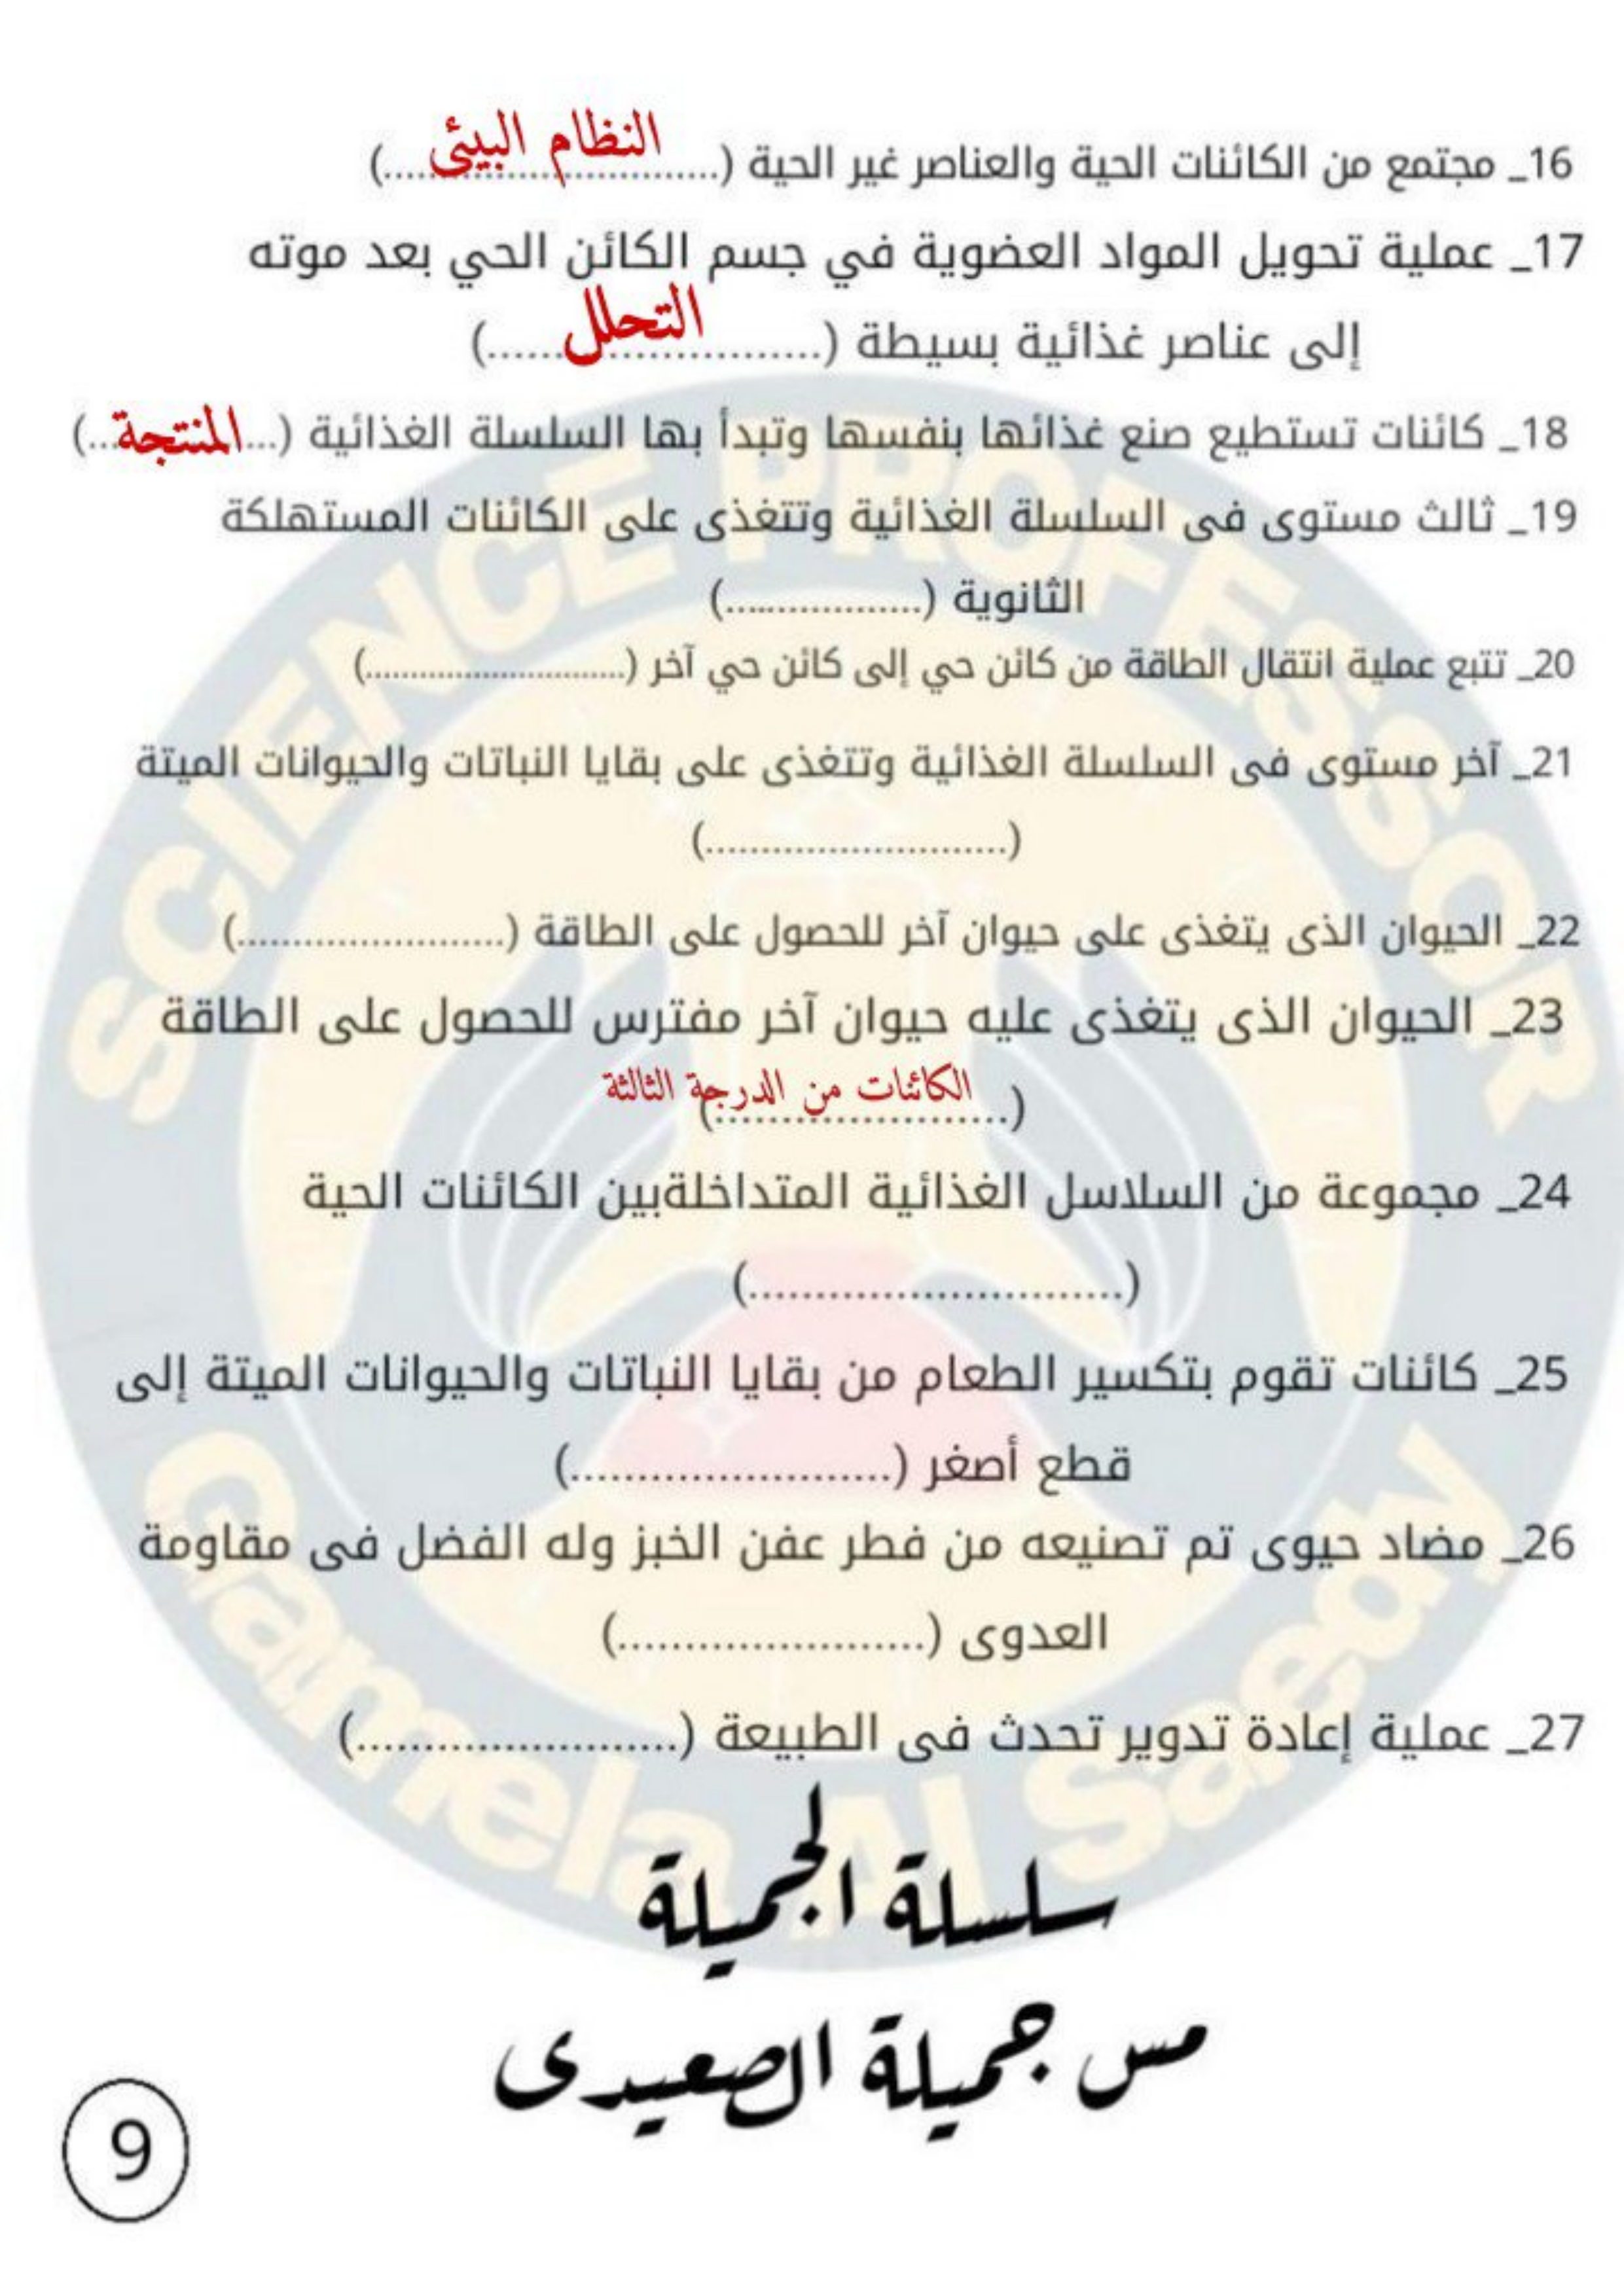 16_ مجتمع من الكائنات الحية والعناصر غير الحية (....النظام البيئى....)
17_ عملية تحويل المواد العضوية في جسم الكائن الحي بعد موته
إلى عناصر غذائية بسيطة (....التحلل....)
18_ كائنات تستطيع صنع غذائها بنفسها وتبدأ بها السلسلة الغذائية (...المنتجة...)
19_ ثالث مستوى فى السلسلة الغذائية وتتغذى على الكائنات المستهلكة
الثانوية (...................)
20_ تتبع عملية انتقال الطاقة من كائن حي إلى كائن حي آخر (...........................)
21_ آخر مستوى فى السلسلة الغذائية وتتغذى على بقايا النباتات والحيوانات الميتة
(...........................)
22_ الحيوان الذى يتغذى على حيوان آخر للحصول على الطاقة (........................)
23_ الحيوان الذى يتغذى عليه حيوان آخر مفترس للحصول على الطاقة
(....الكائنات من الدرجة الثالثة....)
24_ مجموعة من السلاسل الغذائية المتداخلةبين الكائنات الحية
(............................)
25_ كائنات تقوم بتكسير الطعام من بقايا النباتات والحيوانات الميتة إلى
قطع أصغر (........................)
26_ مضاد حيوى تم تصنيعه من فطر عفن الخبز وله الفضل فى مقاومة
العدوى (.......................)
27_ عملية إعادة تدوير تحدث فى الطبيعة (........................)
سلسلة الجميلة
مس جميلة الصعيدى
9
SCIENCE PROFESSOR
Gamela Al Saedy